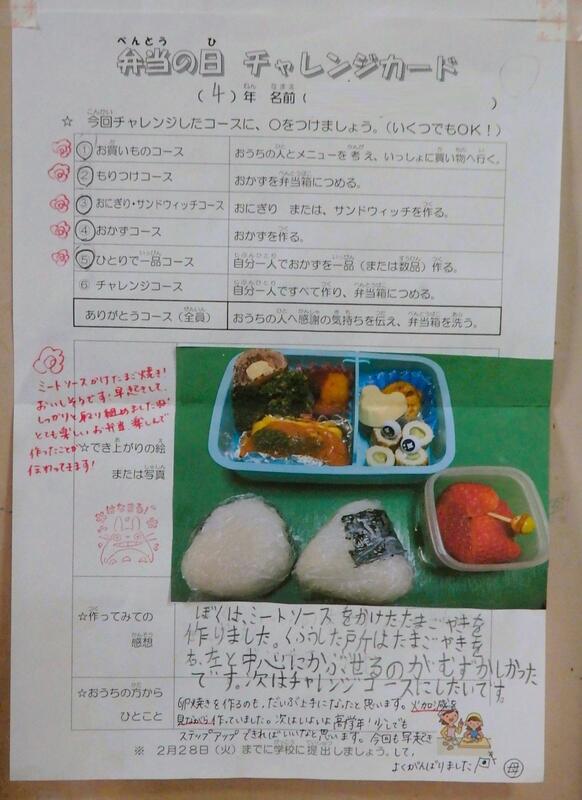 弁当の日 チャレンジカード
べんとう ひ
(4)年 名前( )
ねん なまえ
☆ 今回チャレンジしたコースに、○をつけましょう。(いくつでもOK!)
こんかい
① お買いものコース おうちの人とメニューを考え、いっしょに買い物へ行く。
② もりつけコース おかずを弁当箱につめる。
③ おにぎり・サンドウィッチコース おにぎり または、サンドウィッチを作る。
④ おかずコース おかずを作る。
⑤ ひとりで一品コース 自分一人でおかずを一品(または数品)作る。
⑥ チャレンジコース 自分一人ですべて作り、弁当箱につめる。
ありがとうコース(全員) おうちの人へ感謝の気持ちを伝え、弁当箱を洗う。
ミートソースかけたまご焼き!
おいしそうです!早起きして、
しっかりと取り組めましたね!
とても楽しいお弁当、楽しんで
作ったことが
伝わってきます!
☆でき上がりの絵
または写真
はなまる!
☆作ってみての
感想
ぼくは、ミートソースをかけたたまごやきを
作りました。くふうした所はたまごやきを
右、左と中心にかぶせるのがむずかしかった
です。次はチャレンジコースにしたいです。
☆おうちの方から
ひとこと
卵焼きを作るのも、だいぶ上手になったと思います。火加減を
見ながら作っていました。次はいよいよ高学年!少しでも
ステップアップできればいいなと思います。今回も早起き
して、
よくがんばりました
母
※ 2月28日(火)までに学校に提出しましょう。